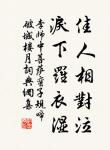 佳人相對泣
淚下羅衣濕
李師中菩薩蠻子規啼
破城樓月詞典網集